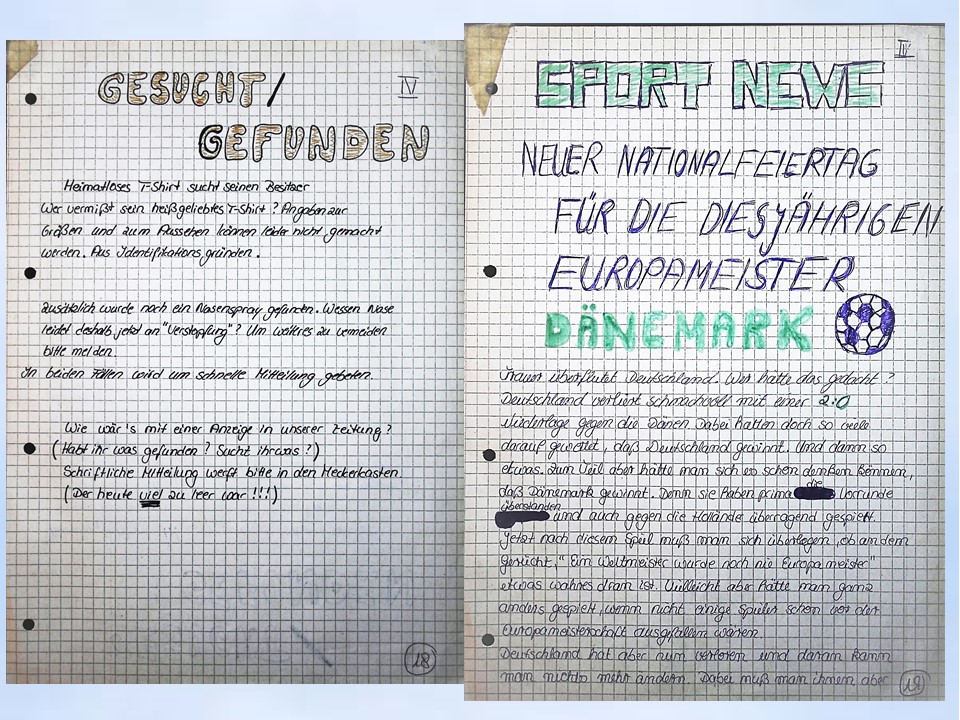 GESUCHT/
IV
GEFUNDEN
Heimatloses T-Shirt sucht seinen Besitzer
Wer vermißt sein heißgeliebtes T-Shirt? Angaben zur
Größen und zum Aussehen können leider nicht gemacht
werden. Aus Identifikationsgründen.
Zusätzlich wurde noch ein Nasenspray gefunden. Wessen Nase
leidet deshalb jetzt an "Verstopfung"? Um weiteres zu vermeiden
bitte melden.
In beiden Fällen wird um schnelle Mitteilung gebeten.
Wie wär's mit einer Anzeige in unserer Zeitung?
(Habt ihr was gefunden? Sucht ihr was?)
Schriftliche Mitteilung werft bitte in den Meckerkasten.
(Der heute viel zu leer war!!!)
18
IV
SPORT NEWS
NEUER NATIONALFEIERTAG
FÜR DIE DIESJÄHRIGEN
EUROPAMEISTER
DÄNEMARK
Trauer überflutet Deutschland. Wer hätte das gedacht?
Deutschland verliert schmachvoll mit einer 2:0
Niederlage gegen die Dänen. Dabei hatten doch so viele
darauf gewettet, daß Deutschland gewinnt. Und dann so
etwas. Zum Teil aber hätte man sich es schon denken können,
daß Dänemark gewinnt. Denn sie haben prima die Vorrunde
überstanden und auch gegen die Hollände überragend gespielt.
Jetzt nach diesem Spiel muß man sich überlegen, ob an dem
Gerücht, "Ein Weltmeister wurde noch nie Europameister"
etwas wahres dran ist. Vielleicht aber hätte man ganz
anders gespielt, wenn nicht einige Spieler schon vor der
Europameisterschaft ausgefallen wären.
Deutschland hat aber nun verloren und daran kann
man nichts mehr ändern. Dabei muß man ihnen aber
19